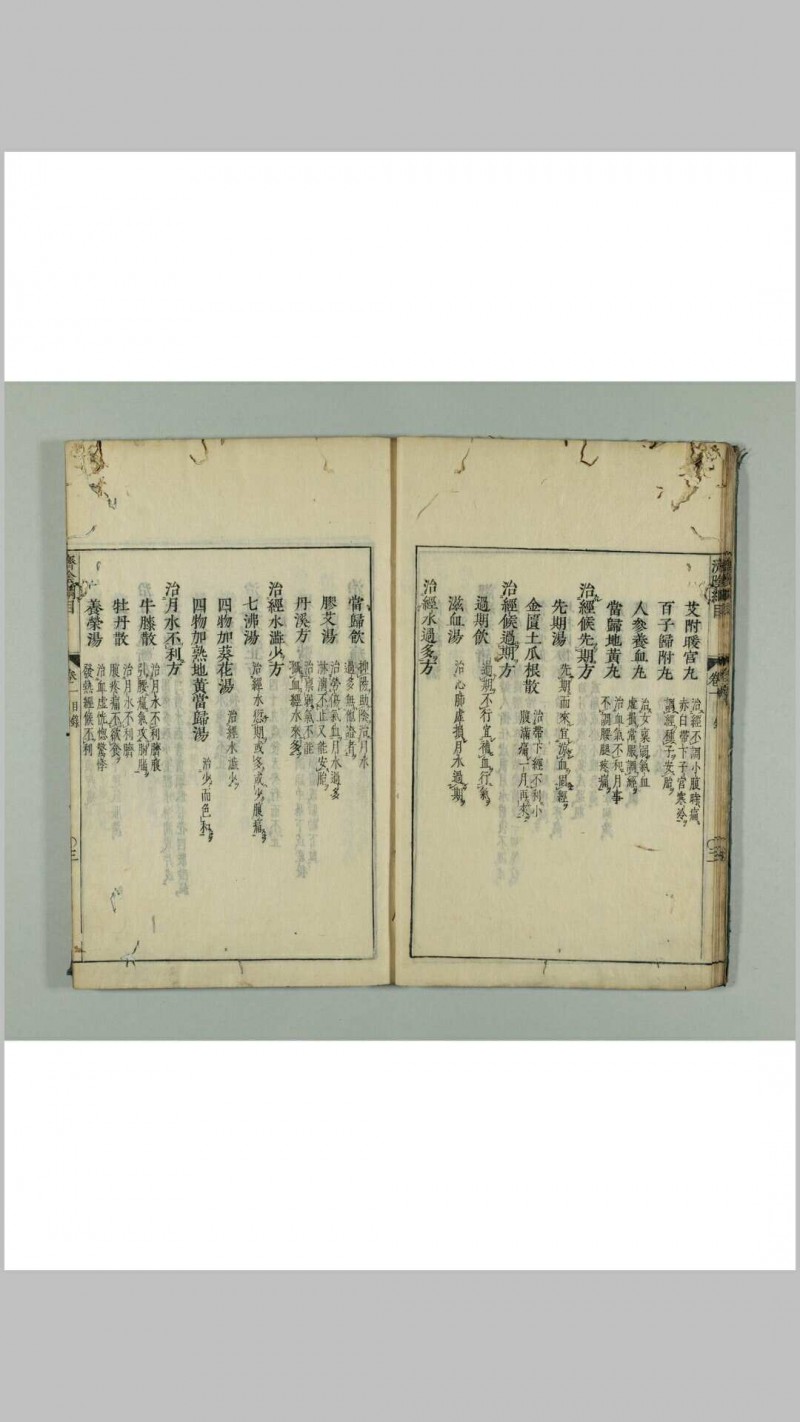 艾附暖宮丸 治經不調小腹時痛
赤白帶下子宮寒冷
百子歸附丸 調經種子安胎
人參養血丸 治女裏弱氣血
虛損常服調經
當歸地黃丸 治血氣不和月事
不調腰腿疼痛
治經候先期方
先期湯 先期而來宜涼血固經
金匱土瓜根散 治帶下經不利小
腹滿痛一月再來
治經候過期方
過期飲 過期不行宜補血行氣
滋血湯 治心肺虛損月水過期
治經水過多方
當歸飲 抑陽助陰治月水
過多無他證者
膠艾湯 治勞傷氣血月水過多
淋漓不止又能安胎
丹溪方 治禀弱氣不能
攝血經水來多
治經水澁少方
七沸湯 治經水愆期或多或少腹痛
四物加葵花湯 治經水澁少
四物加熟地黃當歸湯 治少而色和
治月水不利方
牛膝散 治月水不利臍腹
引腰痛氣攻胸膈
牡丹散 治月水不利臍
腹疼痛不欲食
養榮湯 治血虛惟惚驚悸
發熱經候不利
卷一目錄